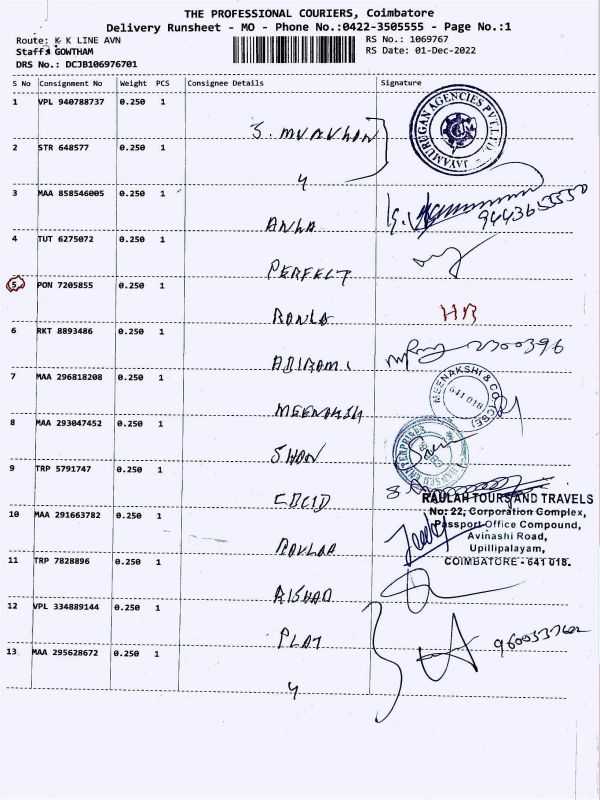 THE PROFESSIONAL COURIERS, Coimbatore
Delivery Runsheet - MO - Phone No.:0422-3505555 - Page No.:1
Route: K K LINE AVN
RS No.: 1069767
Staff: GOWTHAM
RS Date: 01-Dec-2022
DRS No.: DCJB106976701
S No Consignment No Weight PCS Consignee Details Signature
1 VPL 940788737 0.250 1
JAYAMURUGAN AGENCIES PVT.LTD.
2 STR 648577 0.250 1
3 MAA 858546005 0.250 1
ANLA
4 TUT 6275072 0.250 1
PERFECT
5 PON 7205855 0.250 1
HB
6 RKT 8893486 0.250 1
ADIRAMI
7 MAA 296818208 0.250 1
MEENAKSHI & CO (CBE)
641 018
MEENAKSH
8 MAA 293047452 0.250 1
SHAN
ENTERPRISES
9 TRP 5791747 0.250 1
CBCID
RAULAH TOURS AND TRAVELS
No: 22, Corporation Complex,
10 MAA 291663782 0.250 1
Passport Office Compound,
Avinashi Road,
Upillipalayam,
COIMBATORE - 641 018.
11 TRP 7828896 0.250 1
12 VPL 334889144 0.250 1
PLAT
13 MAA 295628672 0.250 1